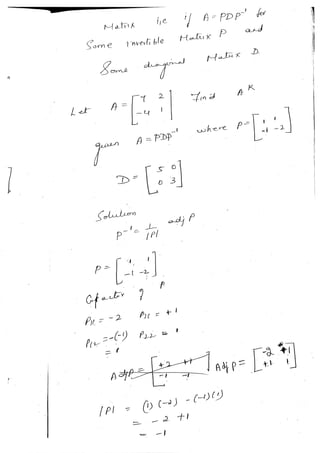 Matrix i,e if A = PDP⁻¹ for
Some invertible Matrix P and
Some diagonal Matrix D.
Let A = [7 2; -4 1] Find Aᴷ
given A = PDP⁻¹ where P = [1 1; -1 -2]
D = [5 0; 0 3]
Solution
P⁻¹ = 1/|P| adj P
P = [1 1; -1 -2]
Cofactor of P
P₁₁ = -2 P₂₁ = +1
P₁₂ = -(-1) P₂₂ = 1
= 1
Adj P = [+2 +1; -1 -1] Adj P = [-2 +1; +1 1]
|P| = (1) (-2) - (-1)(1)
= -2 +1
= -1